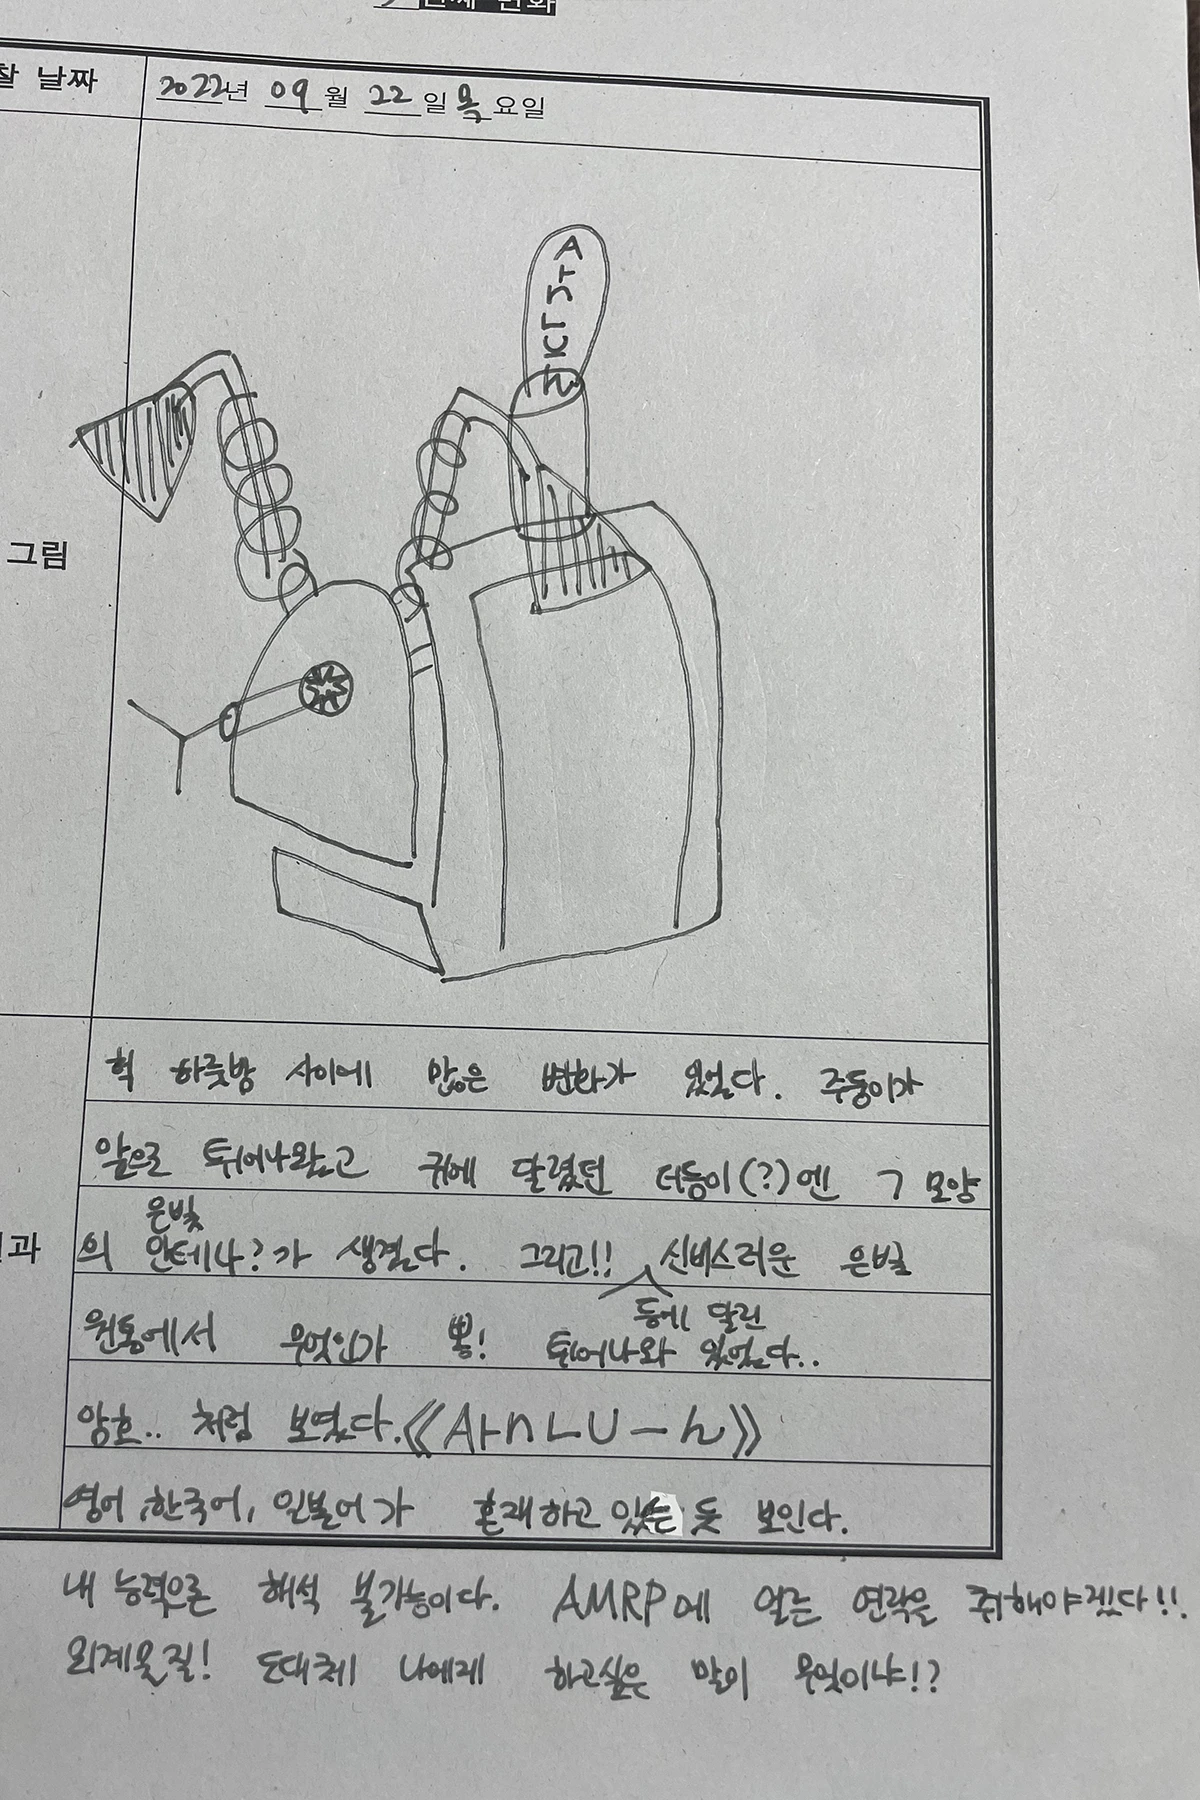 번째 변화
찰 날짜
2022년 09월 22일 목요일
그림
헉 하룻밤 사이에 많은 변화가 있었다. 주둥이가
앞으로 튀어나왔고 귀에 달렸던 더듬이(?)엔 ㄱ 모양
은빛
의 안테나?가 생겼다. 그리고!! 신비스러운 은빛
등에 달린
원통에서 무엇인가 뿅! 튀어나와 있었다..
암호.. 처럼 보였다.《AㅏnㄴUㅡん》
영어, 한국어, 일본어가 혼재하고 있는 듯 보인다.
과
내 능력으론 해석 불가능이다. AMRP에 얼른 연락을 취해야겠다!!.
외계물질! 도대체 나에게 하고싶은 말이 무엇이냐!?